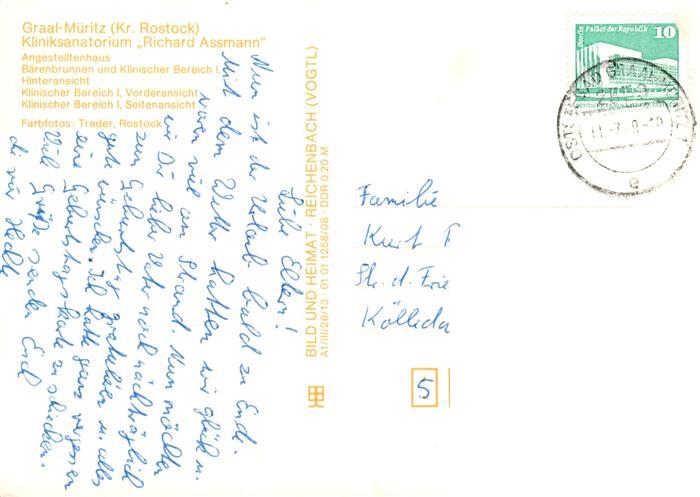 Graal-Müritz (Kr. Rostock)
Kliniksanatorium „Richard Assmann"
Angestelltenhaus
Bärenbrunnen und Klinischer Bereich I,
Hinteransicht
Klinischer Bereich I, Vorderansicht
Klinischer Bereich I, Seitenansicht
Farbfotos: Treder, Rostock
Liebe Eltern!
Nun ist der Urlaub bald zu Ende.
Mit dem Wetter hatten wir Glück u.
waren viel am Strand. Nun möchten
wir Dir lieber Vater noch nachträglich
zum Geburtstag gratulieren u. alles
gute wünschen. Ich hatte ganz vergessen
eine Geburtstagskarte zu schicken.
Viele Grüße senden Euch
die vier
BILD UND HEIMAT · REICHENBACH (VOGTL)
A1/III/26/13 · 01 01 1258/08 · DDR 0,20 M
Berlin Palast der Republik 10
OSTSEEBAD GRAAL-MÜRITZ
e
Familie
Kurt F
Str. d. Frie
Kölleda
5